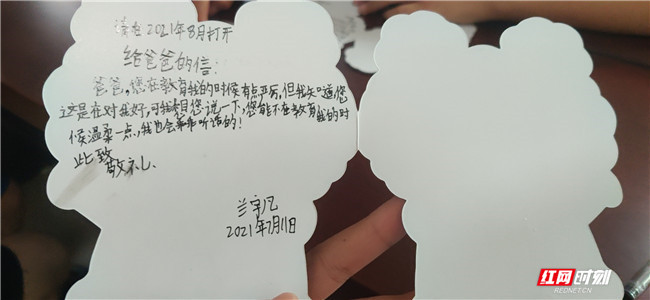 请在2021年8月打开
给爸爸的信:
爸爸,您在教育我的时候有点严厉,但我知道您
这是在对我好,可我想跟您说一下,您能不在教育我的时
候温柔一点,我也会乖乖听话的!
此致
敬礼
兰宇凡
2021年7月11日
红网时刻
REDNET.CN